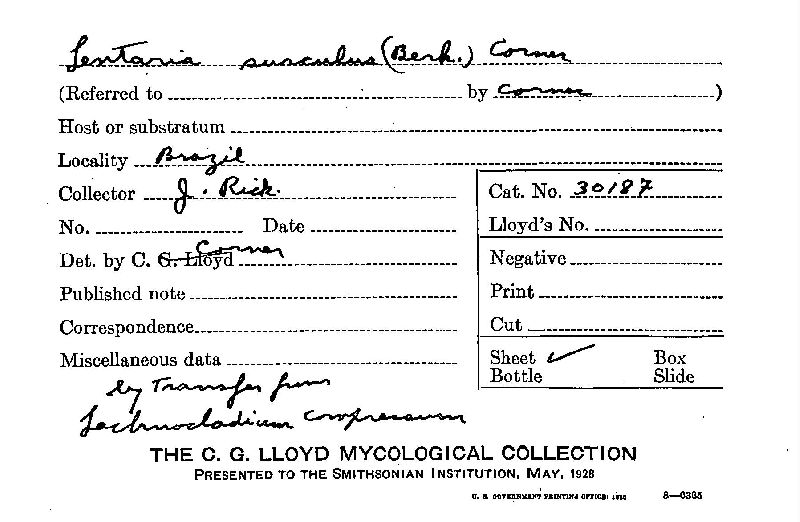 Lentaria surculus (Berk.) Corner
(Referred to by Corner )
Host or substratum
Locality Brazil
Collector J. Rick.
Cat. No. 30187
No. Date
Lloyd's No.
Det. by C. G. Lloyd Corner
Negative
Published note
Print
Correspondence
Cut
Miscellaneous data
Sheet ✓ Box
Bottle Slide
by Transfer from
Lachnocladium compressum
THE C. G. LLOYD MYCOLOGICAL COLLECTION
PRESENTED TO THE SMITHSONIAN INSTITUTION, MAY, 1928
U. S. GOVERNMENT PRINTING OFFICE: 8—6385